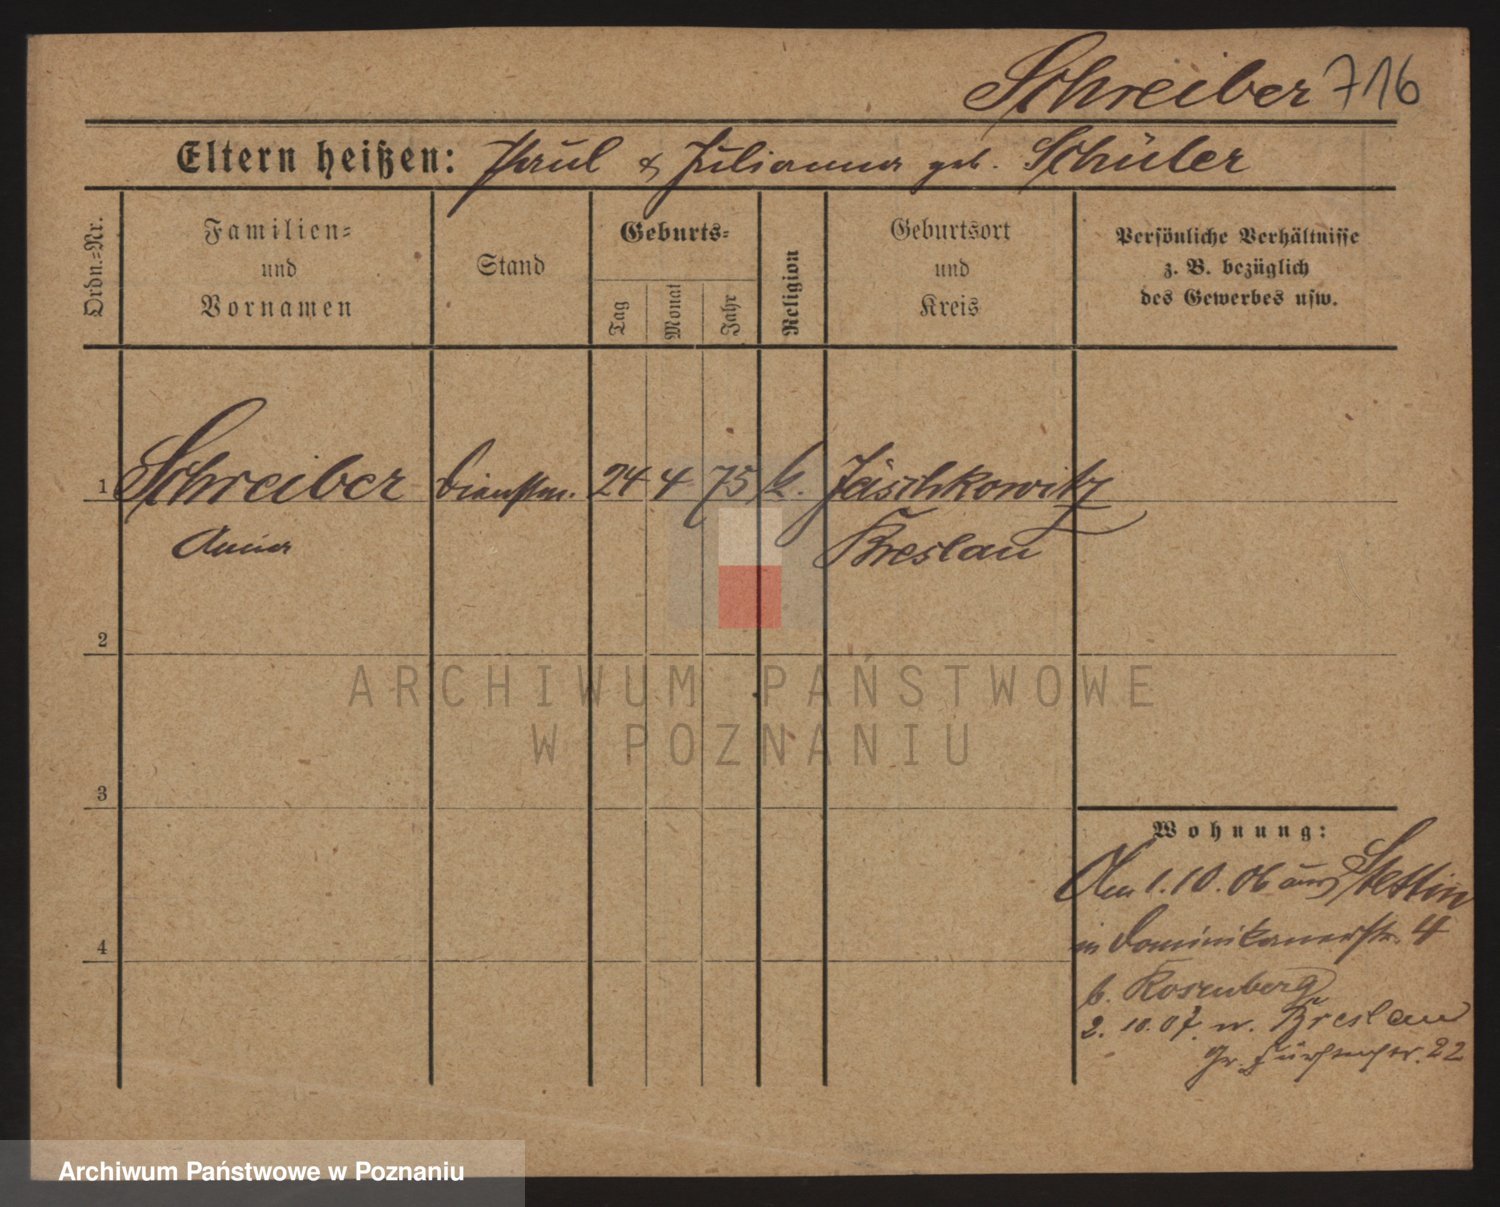 Schreiber 716
Eltern heißen: Paul & Julianna geb. Schüler
Ordn.=Nr.
Familien=
und
Vornamen
Stand
Geburts=
Tag
Monat
Jahr
Religion
Geburtsort
und
Kreis
Persönliche Verhältnisse
z. B. bezüglich
des Gewerbes usw.
1 Schreiber Dienstm. 24 4 75 k. Jäschkowitz
Anna Breslau
2
ARCHIWUM PAŃSTWOWE
W POZNANIU
3
Wohnung:
Am 1.10.06 aus Stettin
in Dominikanerstr. 4
4
b. Rosenberg
2. 10. 07. n. Breslau
Gr. Fürstenstr. 22
Archiwum Państwowe w Poznaniu